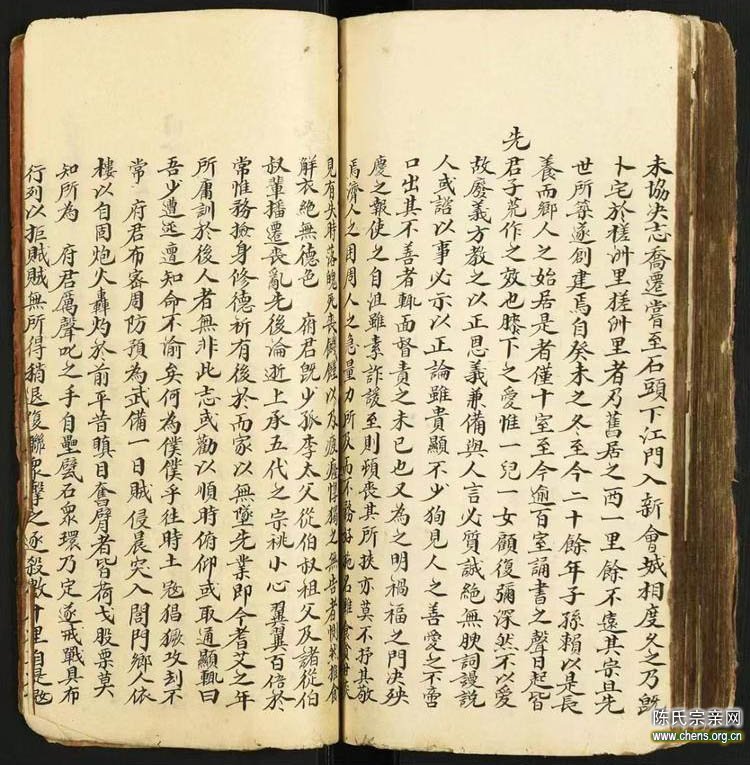 未協決志喬遷嘗至石頭下江門入新會城相度久之乃既
卜宅於槎洲里槎洲里者乃舊居之西一里餘不遠其宗且先
世所築遂創建焉自癸未之冬至今二十餘年子孫賴以是長
養而鄉人之始居是者僅十室至今逾百室誦書之聲日起皆
先
君子荒作之效也膝下之愛惟一兒一女顧復彌深然不以愛
故廢義方教之以正思義兼備與人言必質誠絕無腴詞謾說
人或諮以事必示以正論雖貴顯不少狥見人之善愛之不啻
口出其不善者輒面督責之未已也又為之明禍福之門決殃
慶之報使之自沮雖素詐諼至則頩喪其所挾亦莫不抒其敬
焉濟人之困周人之急量力所及而不務好施名雖
見有失時落魄死喪饑饉以及疲癃惸獨之無告者惻
解衣絕無德色 府君既少孤李太父從伯叔祖父及諸從伯
叔輩播遷喪亂先後淪逝上承五代之宗祧小心翼翼百倍於
常惟務撿身修德祈有後於而家以無墜先業即今耆艾之年
所庸訓於後人者無非此志或勸以順時俯仰或取通顯輒曰
吾少遭迍邅知命不渝矣何為僕僕乎往時土寇猖獗攻刻不
常 府君布審周防預為武備一日賊侵晨突入閤門鄉人依
樓以自固炮火轟灼於前平昔瞋目奮臂者皆荷戈股栗莫
知所為 府君厲聲叱之手自壘甓石衆環乃定遂戒戰具布
行列以拒賊賊無所得稍退復聯衆擊之逐殺數十里自是
陈氏宗亲网
www.chens.org.cn